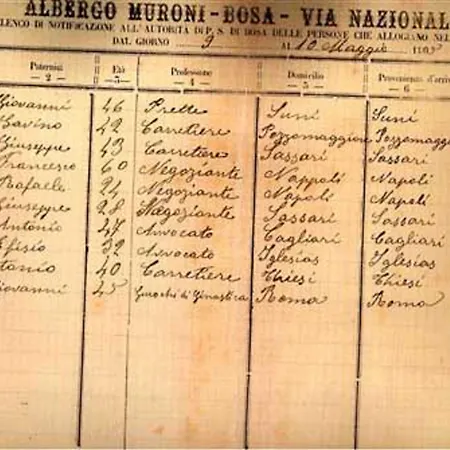 ALBERGO MURONI-BOSA- VIA NAZIONAL
LENCO DI NOTIFICAZIONE ALL'AUTORITÀ DI P. S. DI BOSA DELLE PERSONE CHE ALLOGIANO NEL
DAL GIORNO 9 AL 10 Maggio
Paternini Età Professione Domicilio Provenienza d'arriv
- 2 - - 3 - - 4 - - 5 - - 6 -
Giovanni 46 Prette Suni Suni
Gavino 22 Carretiere Pozzomaggiore Pozzomagg
Giuseppe 43 Carretiere Sassari Sassari
Francesco 60 Negoziante Nappoli Napoli
Rafaele 24 Negoziante Napoli Napoli
Giuseppre 28 Nagoziante Sassari Sassari
Antonio 47 Avvocato Cagliari Cagliari
Efisio 32 Avvocato Iglesias Iglesias
ntonio 40 Carretiere Thiesi Thiesi
iovanni 45 Giuochi di Ginastica Roma Roma